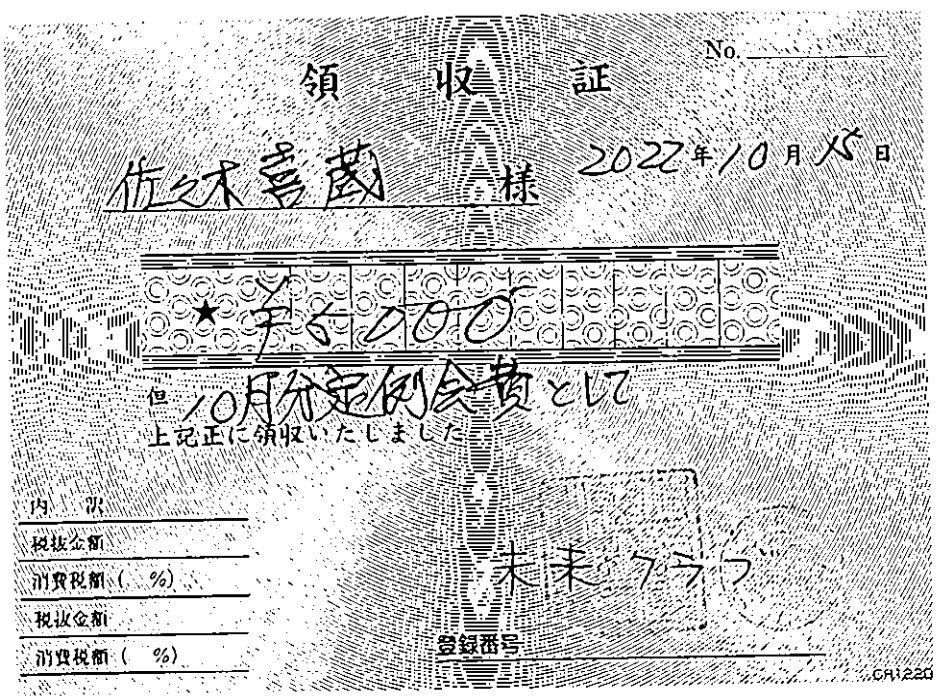 No.
領収証
佐々木喜蔵 様
2022年10月15日
★ ¥5000
但 10月分定例会費として
上記正に領収いたしました
内訳
税抜金額
消費税額( %)
税抜金額
消費税額( %)
未来クラブ
登録番号
CR1220